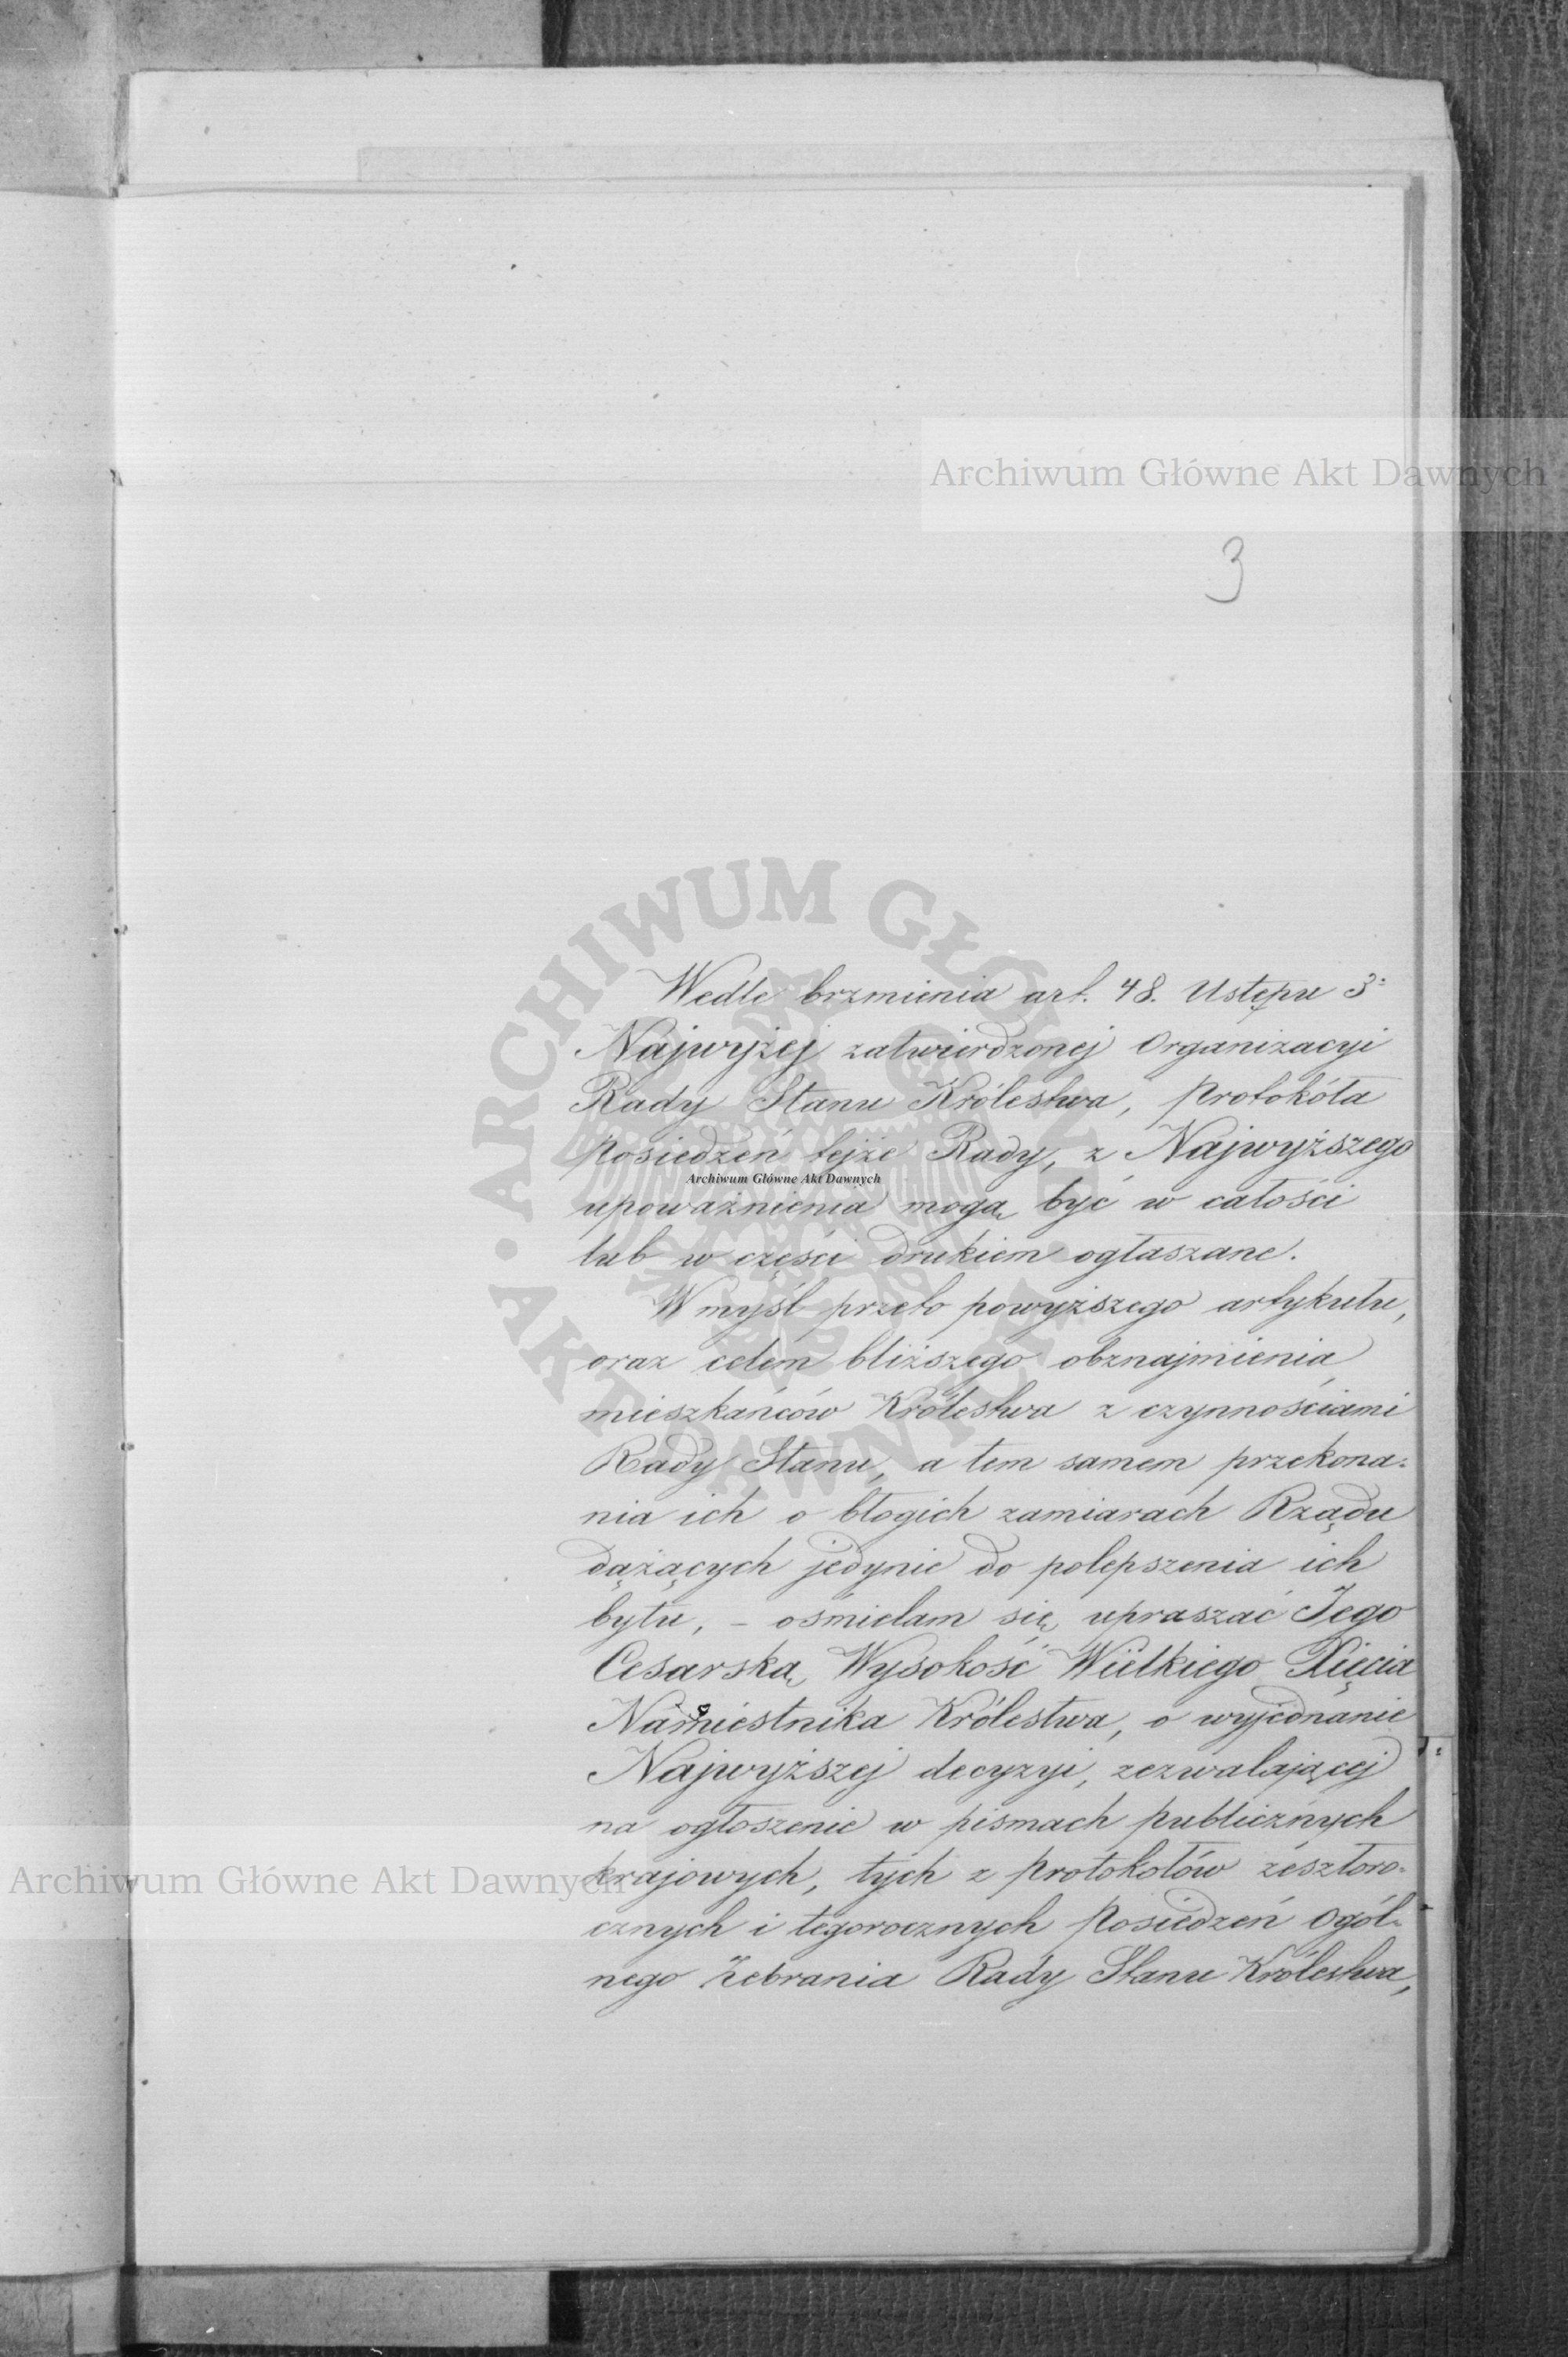 Archiwum Główne Akt Dawnych
3
Wedle brzmienia art. 48. Ustępu 3:
Najwyżej zatwierdzonej Organizacyi
Rady Stanu Królestwa, Protokóła
posiedzeń tejże Rady, z Najwyższego
Archiwum Główne Akt Dawnych
upoważnienia mogą być w całości
lub w części drukiem ogłaszane.
W myśl przeto powyższego artykułu,
oraz celem bliższego obznajmienia
mieszkańców Królestwa z czynnościami
Rady Stanu, a tem samem przekona-
nia ich o błogich zamiarach Rządu
dążących jedynie do polepszenia ich
bytu, – ośmielam się upraszać Jego
Cesarską Wysokość Wielkiego Xięcia
Namiestnika Królestwa, o wyjednanie
Najwyższej decyzyi, zezwalającej
na ogłoszenie w pismach publicznych
krajowych, tych z protokołów zeszłoro-
Archiwum Główne Akt Dawnych
cznych i tegorocznych Posiedzeń Ogól-
nego Zebrania Rady Stanu Królestwa,
ARCHIWUM GŁÓWNE • AKT DAWNYCH •